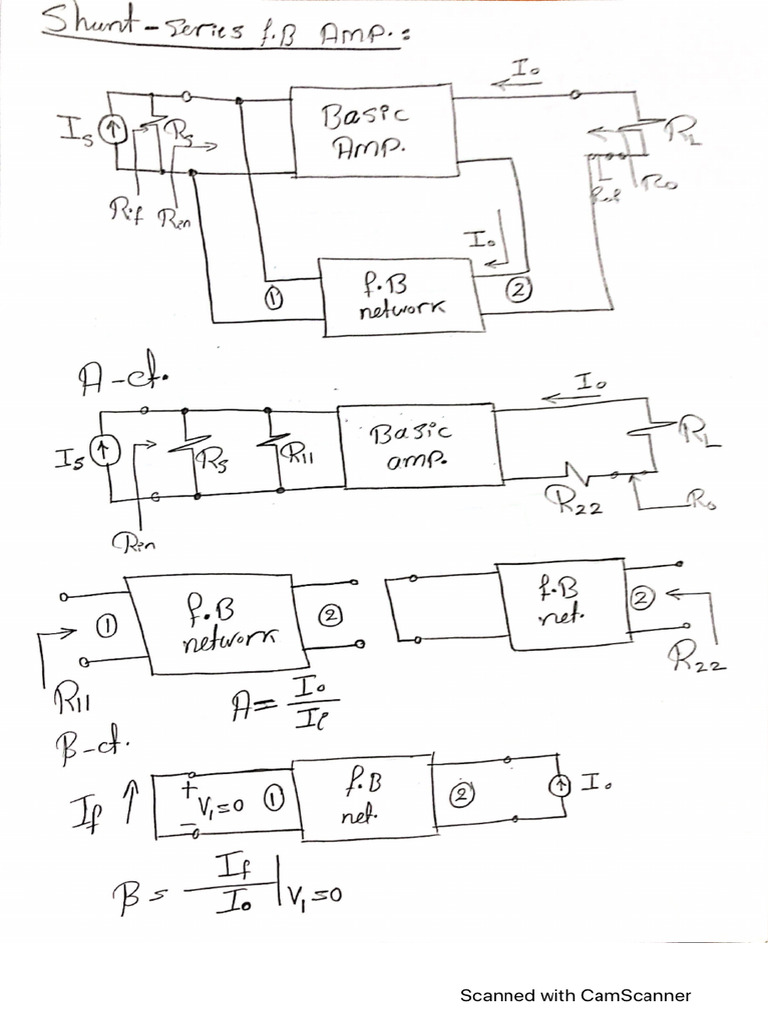 Shunt-series f.B Amp.:
Io
Is
Rs
Basic
Amp.
RL
Rif
Rin
Rof
Ro
Io
①
f.B
network
②
A-ct.
Io
Is
Rs
R11
Basic
amp.
RL
R22
Ro
Rin
①
f.B
network
②
f.B
net.
②
R11
R22
A = Io/Ii
B-ct.
If
+
V1=0
-
①
f.B
net.
②
Io
B = If/Io |V1=0
Scanned with CamScanner